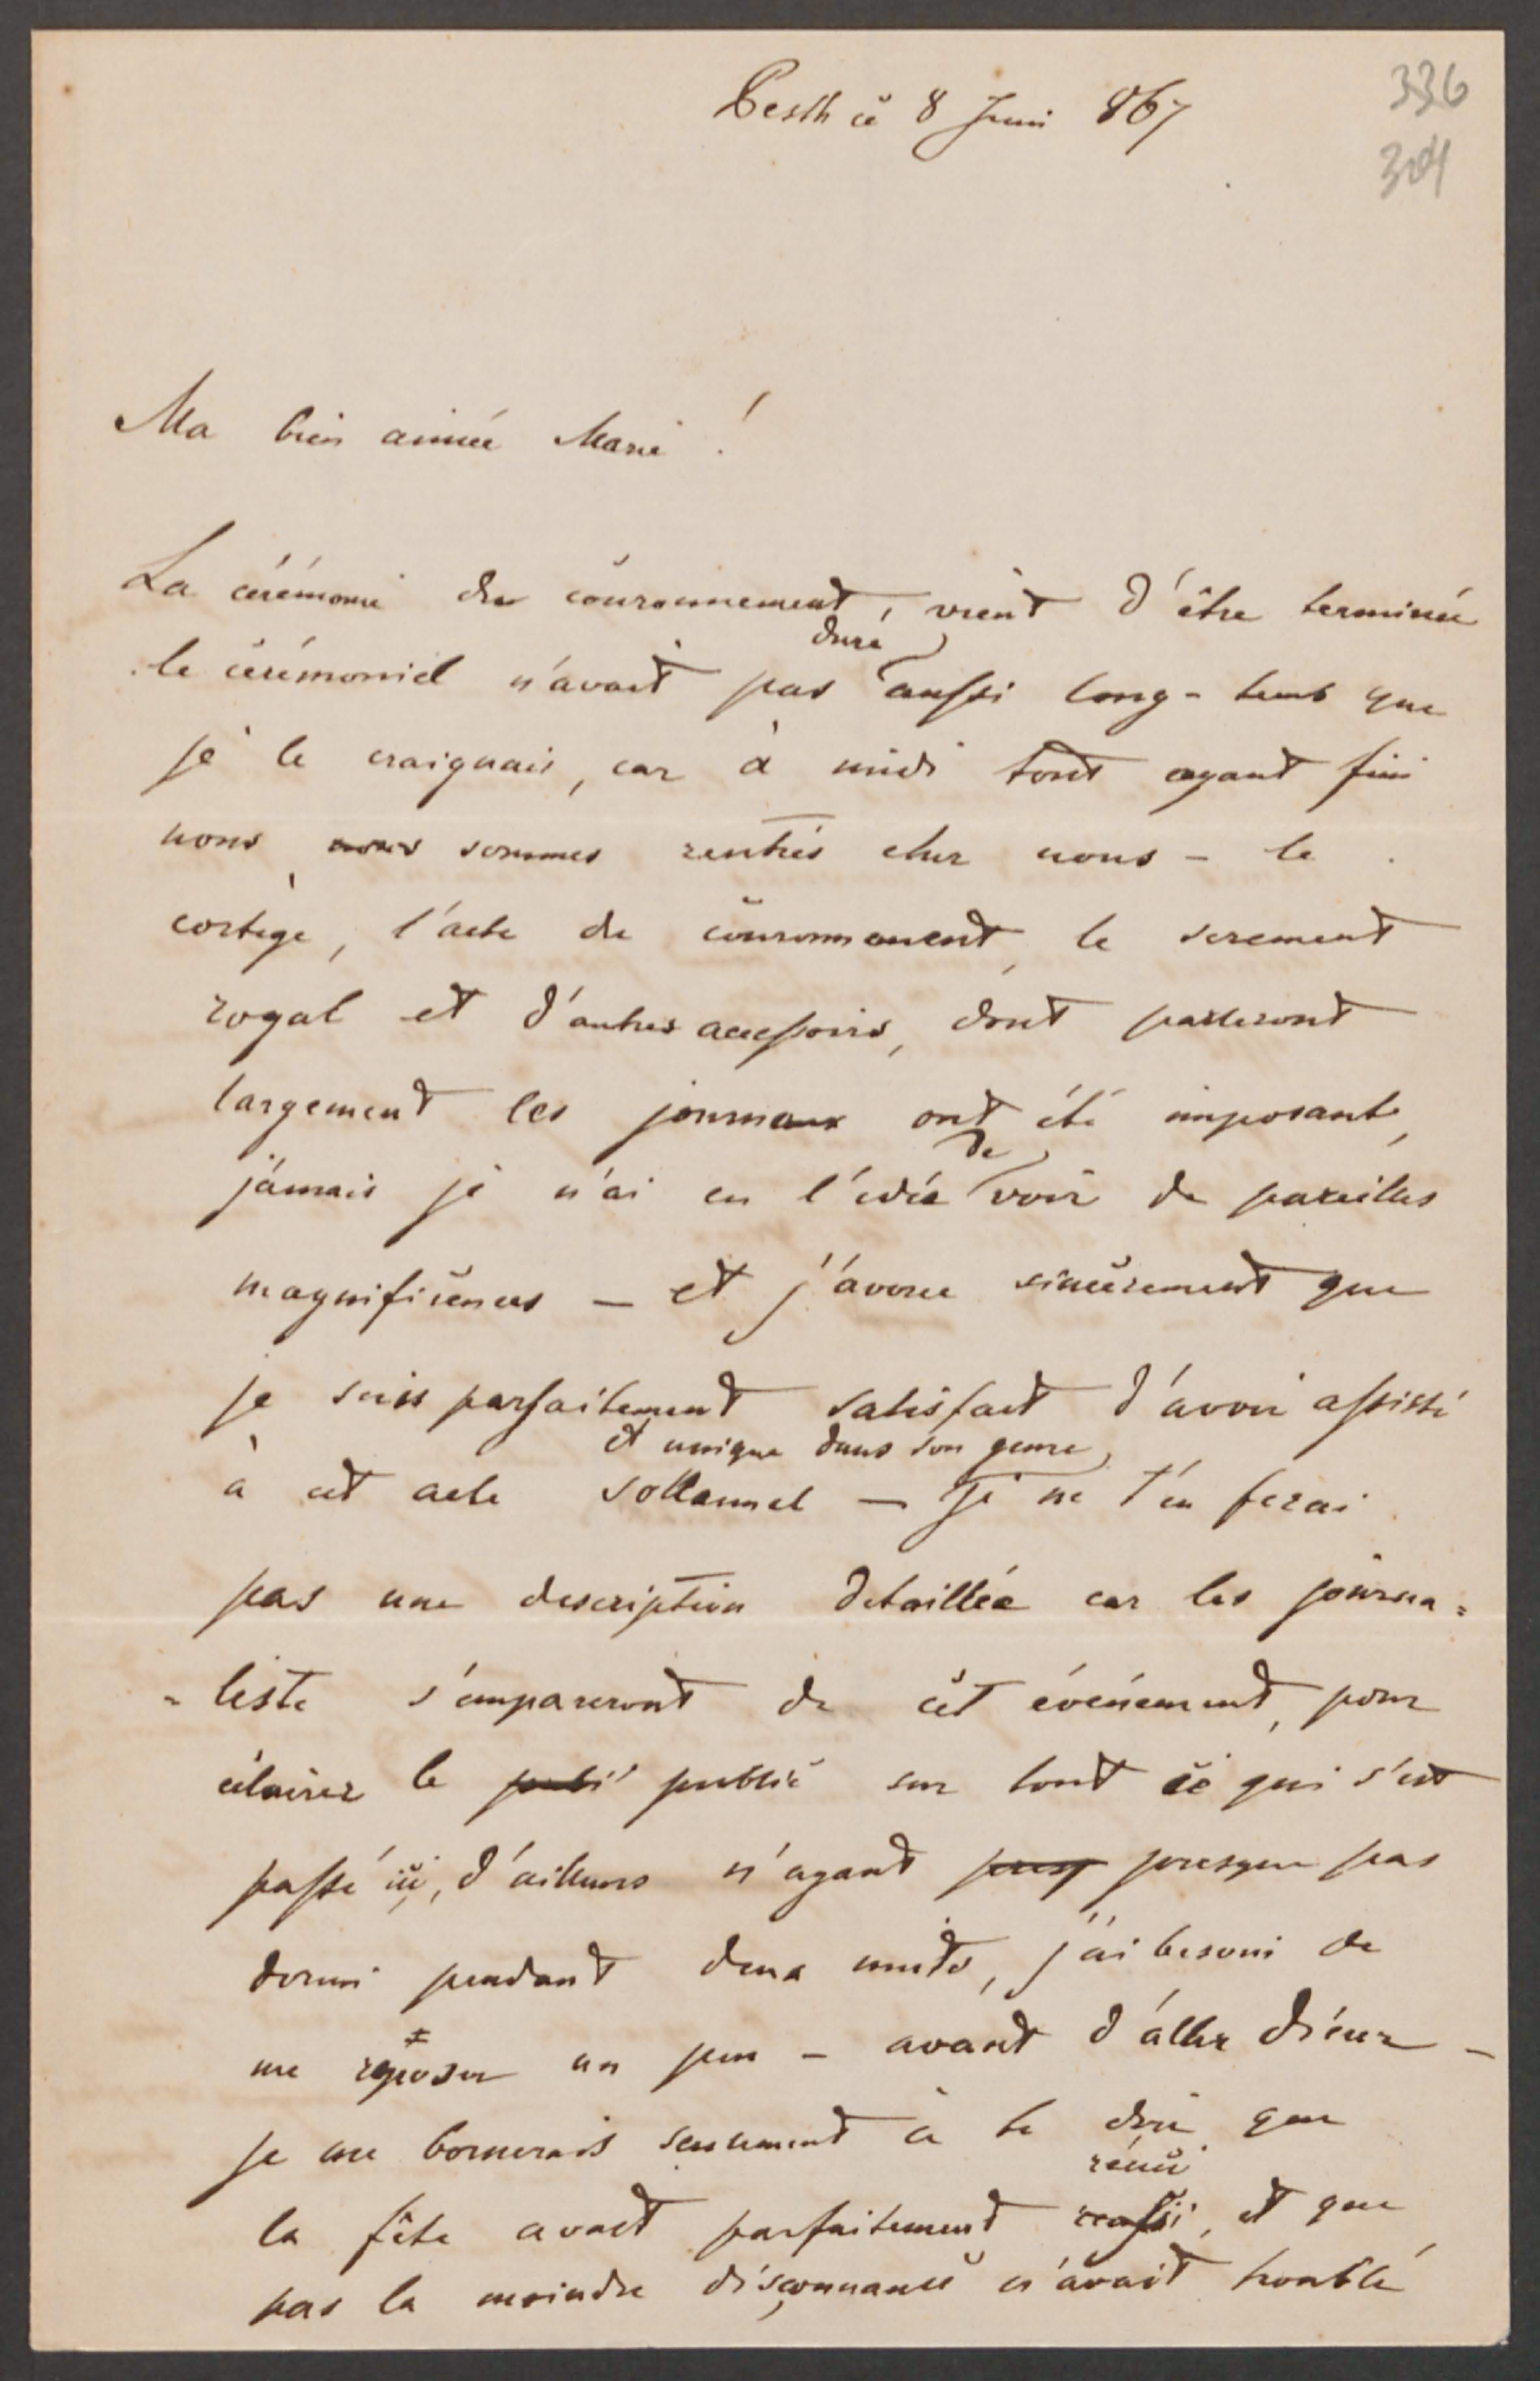 336
304
Pesth ce 8 Juni 867
Ma bien aimée Marie !
La cérémonie du couronnement, vient d'être terminée
duré
le cérémoniel n'avait pas aussi long-tems que
je le craignais, car à midi tout ayant fini
nous nous sommes rentrés chez nous - le
cortège, l'acte de couronnement, le serement
royal et d'autres accessoirs, dont parleront
largement les journaux ont été imposant,
de
jámais je n'ai eu l'idée voir de pareilles
magnificences — et j'avoue sincèrement que
je suis parfaitement satisfait d'avoir assisté
et unique dans son genre
à cet acte sollannel — Je ne t'en ferai
pas une description detaillée car les journa=
=liste s'empareront de cet événement, pour
éclairer le publi public sur tout ce qui s'est
passé ici, d'ailleurs n'ayant presq presque pas
dormi pendant deux nuits, j'ai besoin de
me reposer un peu - avant d'aller diner -
je me bornerais seulement à te dire que
réuci
la fête avait parfaitement reassi, et que
pas la moindre disçonnance n'avait troublé